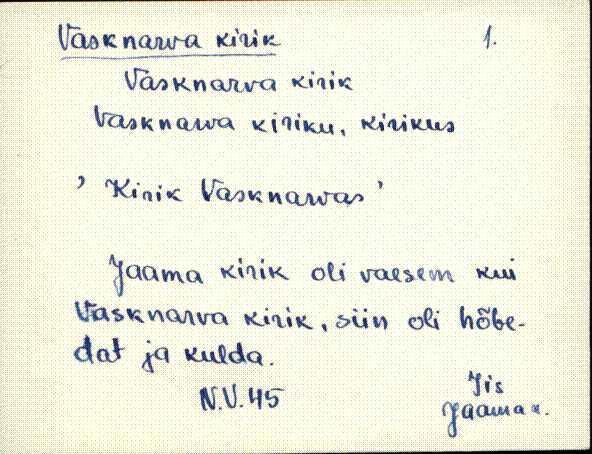 Vasknarva kirik 1.
Vasknarva kirik
Vasknarva kiriku, kirikus
' Kirik Vasknarvas '
Jaama kirik oli vaesem kui
Vasknarva kirik, siin oli hõbe-
dat ja kulda.
N.V. 45 Iis
Jaama k.